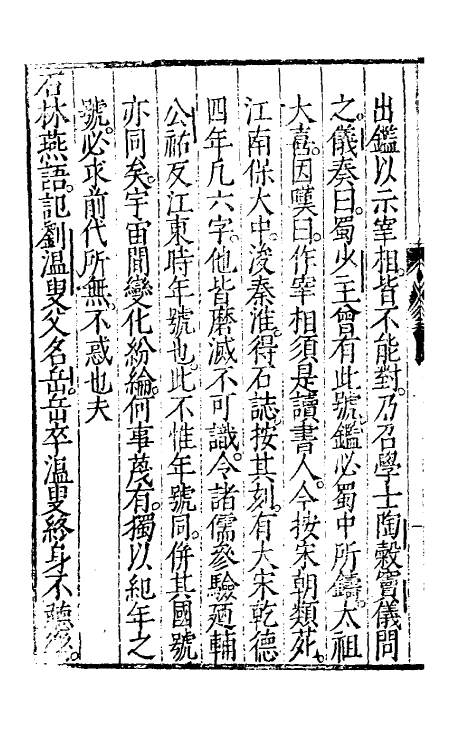 出鑑以示宰相。皆不能對。乃召學士陶穀竇儀問
之。儀奏曰。蜀少主曾有此號。鑑必蜀中所鑄。太祖
大喜。因嘆曰。作宰相須是讀書人。今按宋朝類苑。
江南保大中。浚秦淮。得石誌。按其刻。有大宋乾德
四年凡六字。他皆磨滅不可識。令諸儒參驗廼輔
公祏反江東時年號也。此不惟年號同。併其國號
亦同矣。宇宙間變化紛綸。何事蔑有。獨以紀年之
號。必求前代所無。不惑也夫
石林燕語。記劉溫叟父名岳。岳卒溫叟終身不聽